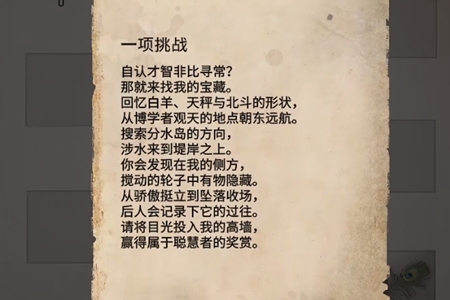 0
一项挑战
自认才智非比寻常？
那就来找我的宝藏。
回忆白羊、天秤与北斗的形状，
从博学者观天的地点朝东远航。
搜索分水岛的方向，
涉水来到堤岸之上。
你会发现在我的侧方，
搅动的轮子中有物隐藏。
从骄傲挺立到坠落收场，
后人会记录下它的过往。
请将目光投入我的高墙，
赢得属于聪慧者的奖赏。